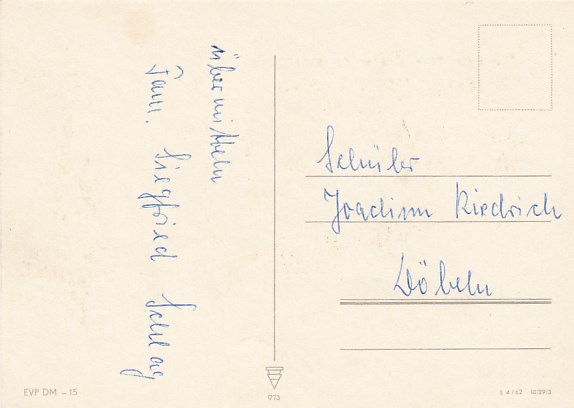 übermitteln
Fam. Siegfried Schlag
Schüler
Joachim Riedrich
Döbeln
EVP DM – 15
973